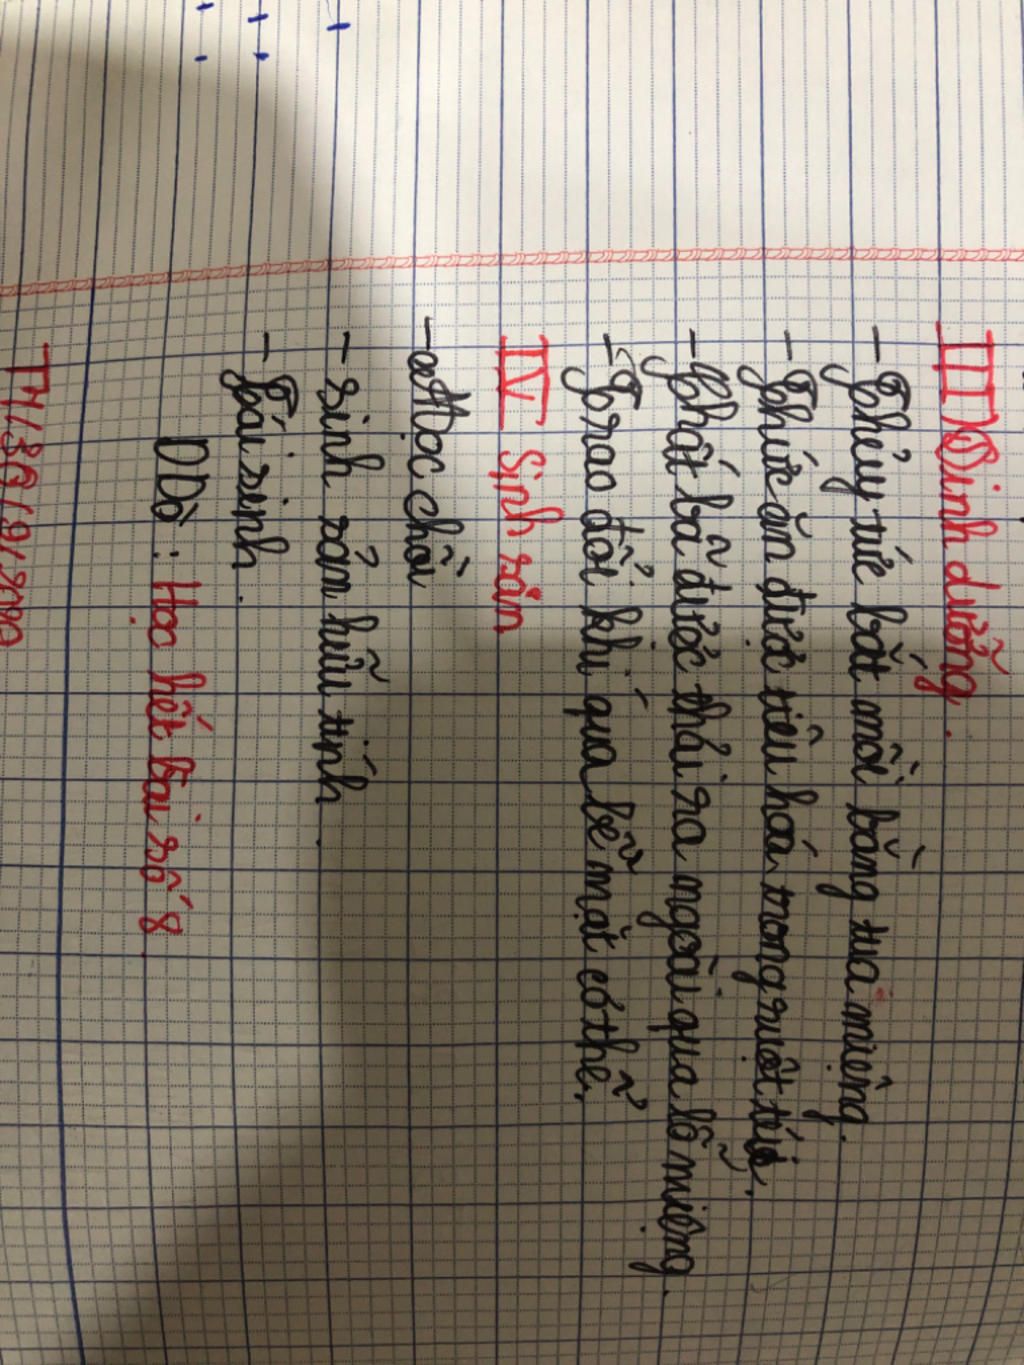 III Dinh dưỡng.
- Thủy tức bắt mồi bằng tua miệng.
- Thức ăn được tiêu hoá trong ruột túi.
- Chất bã được thải ra ngoài qua lỗ miệng.
- Trao đổi khí qua bề mặt cơ thể.
IV Sinh sản
- Mọc chồi
- sinh sản hữu tính.
- Tái sinh.
DDò: Học hết bài số 8.